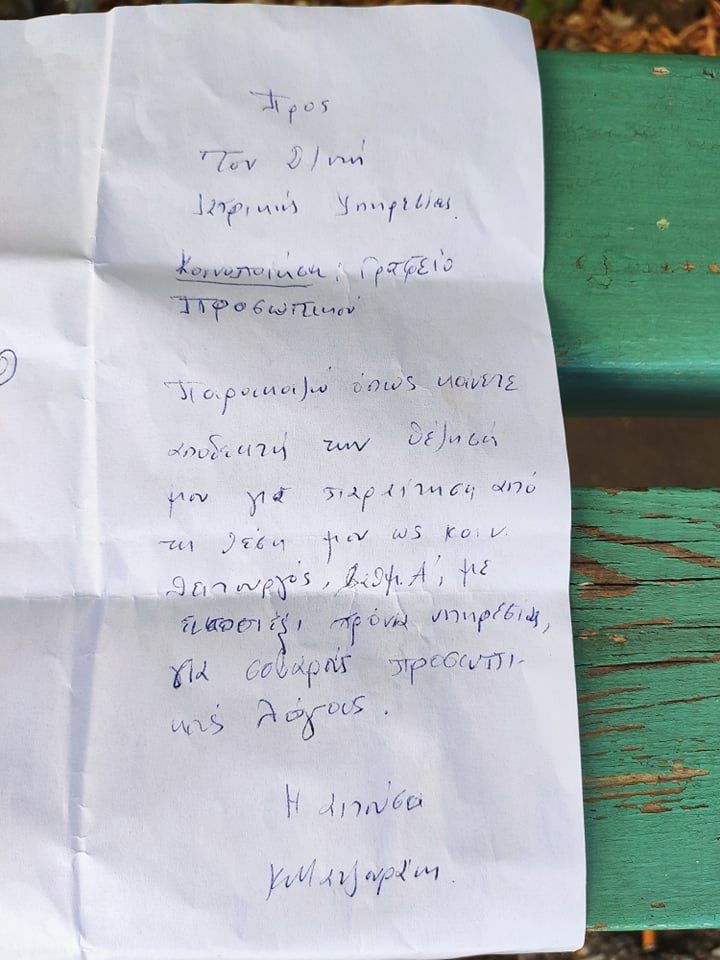 Προς
Τον Δ/ντή
Ιατρικής Υπηρεσίας.
Κοινοποίηση: Γραφείο
Προσωπικού
Παρακαλώ όπως κάνετε
αποδεκτή την θέλησή
μου για παραίτηση από
τη θέση μου ως κοιν.
λειτουργός, βαθμ. Α', με
εικοσιέξι χρόνια υπηρεσίας,
για σοβαρούς προσωπι-
κούς λόγους.
Η αιτούσα